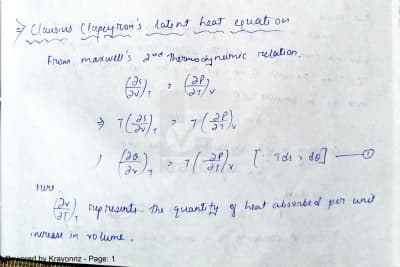 ⇒ Clausius Clapeyron's latent heat equation
From maxwell's 2nd Thermodynamic relation.
(∂s/∂v)_T = (∂P/∂T)_V
⇒ T(∂s/∂v)_T = T(∂P/∂T)_V
(∂Q/∂v)_T = T(∂P/∂T)_V [∵ Tds = dQ] — ①
Here
(∂v/∂T)_T represents the quantity of heat absorbed per unit
increase in volume.
Powered by Krayonnz - Page: 1